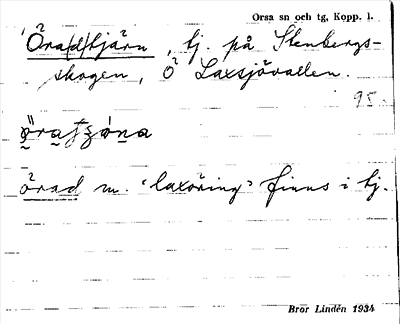 Orsa sn och tg, Kopp. l.
Öra(d)tjärn, tj. på Stenbergs-
skogen, Ö Laxsjövallen.
95.
örad m. "laxöring" finns i tj.
Bror Lindén 1934